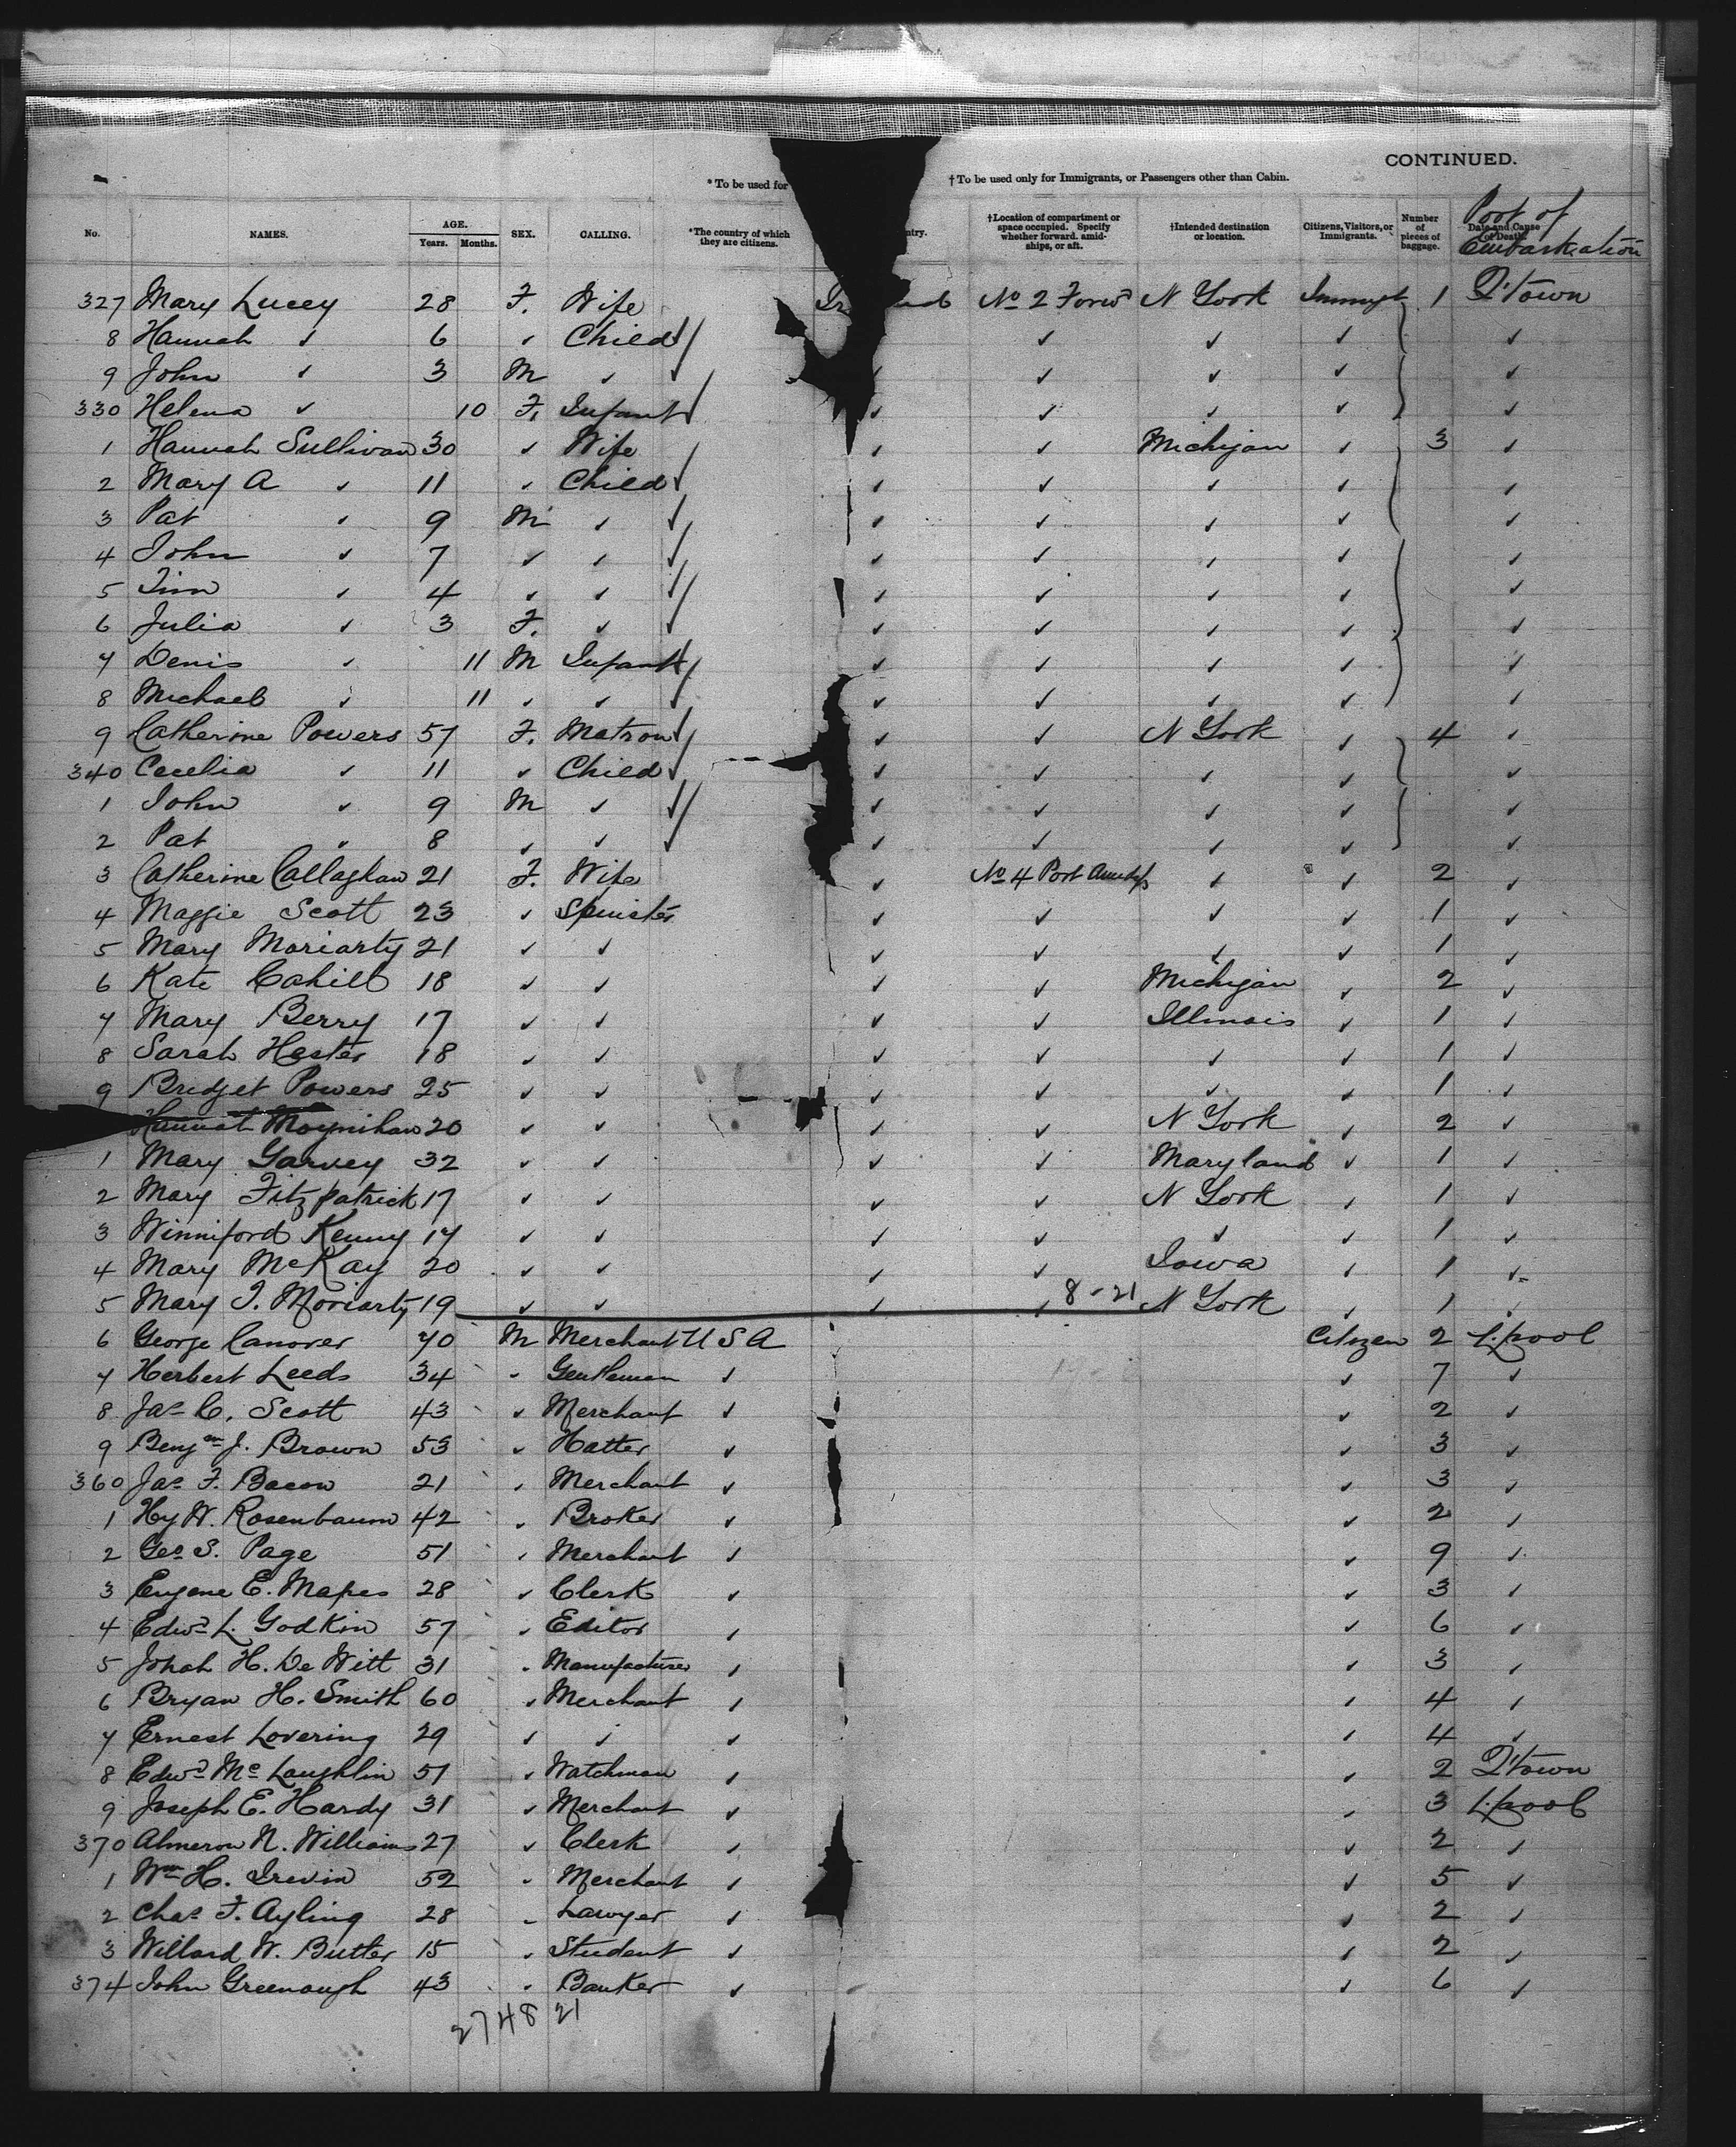 CONTINUED.
* To be used for
† To be used only for Immigrants, or Passengers other than Cabin.
No. NAMES. AGE. Years. Months. SEX. CALLING. *The country of which they are citizens. ntry. †Location of compartment or space occupied. Specify whether forward, amidships, or aft. †Intended destination or location. Citizens, Visitors, or Immigrants. Number of pieces of baggage. Date and Cause of Death. Port of Embarkation
327 Mary Lucey 28 F. Wife No 2 Forwd N York Immigt 1 Q'town
8 Hannah ✓ 6 ✓ Child ✓ ✓ ✓ ✓
9 John ✓ 3 M ✓ ✓ ✓ ✓ ✓ ✓
330 Helena ✓ 10 F. Infant ✓ ✓ ✓ ✓ ✓
1 Hannah Sullivan 30 ✓ Wife ✓ ✓ Michigan ✓ 3 ✓
2 Mary A ✓ 11 ✓ Child ✓ ✓ ✓ ✓ ✓
3 Pat ✓ 9 M ✓ ✓ ✓ ✓ ✓ ✓
4 John ✓ 7 ✓ ✓ ✓ ✓ ✓ ✓ ✓
5 Tim ✓ 4 ✓ ✓ ✓ ✓ ✓ ✓ ✓
6 Julia ✓ 3 F. ✓ ✓ ✓ ✓ ✓ ✓
7 Denis ✓ 11 M Infant ✓ ✓ ✓ ✓ ✓
8 Michael ✓ 11 ✓ ✓ ✓ ✓ ✓ ✓ ✓
9 Catherine Powers 57 F. Matron ✓ ✓ N York ✓ 4 ✓
340 Cecelia ✓ 11 ✓ Child ✓ ✓ ✓ ✓ ✓
1 John ✓ 9 M ✓ ✓ ✓ ✓ ✓ ✓
2 Pat ✓ 8 ✓ ✓ ✓ ✓ ✓ ✓ ✓
3 Catherine Callaghan 21 F. Wife ✓ No 4 Port Amidsps ✓ ✓ 2 ✓
4 Maggie Scott 23 ✓ Spinster ✓ ✓ ✓ ✓ 1 ✓
5 Mary Moriarty 21 ✓ ✓ ✓ ✓ ✓ ✓ 1 ✓
6 Kate Cahill 18 ✓ ✓ ✓ ✓ Michigan ✓ 2 ✓
7 Mary Berry 17 ✓ ✓ ✓ ✓ Illinois ✓ 1 ✓
8 Sarah Hester 18 ✓ ✓ ✓ ✓ ✓ ✓ 1 ✓
9 Bridget Powers 25 ✓ ✓ ✓ ✓ ✓ ✓ 1 ✓
Hannah Moynihan 20 ✓ ✓ ✓ ✓ N York ✓ 2 ✓
1 Mary Garvey 32 ✓ ✓ ✓ ✓ Maryland ✓ 1 ✓
2 Mary Fitzpatrick 17 ✓ ✓ ✓ ✓ N York ✓ 1 ✓
3 Winniford Kenny 17 ✓ ✓ ✓ ✓ ✓ ✓ 1 ✓
4 Mary McKay 20 ✓ ✓ ✓ ✓ Iowa ✓ 1 ✓
5 Mary J. Moriarty 19 ✓ ✓ ✓ ✓ 8-21 N York ✓ 1 ✓
6 George Canover 40 M Merchant U S A Citizen 2 L'pool
7 Herbert Leeds 34 ✓ Gentleman ✓ ✓ 7 ✓
8 Jas C. Scott 43 ✓ Merchant ✓ ✓ 2 ✓
9 Benjmn J. Brown 53 ✓ Hatter ✓ ✓ 3 ✓
360 Jas F. Bacon 21 ✓ Merchant ✓ ✓ 3 ✓
1 Hy W. Rosenbaum 42 ✓ Broker ✓ ✓ 2 ✓
2 Geo S. Page 51 ✓ Merchant ✓ ✓ 9 ✓
3 Eugene E. Mapes 28 ✓ Clerk ✓ ✓ 3 ✓
4 Edwd L. Godkin 57 ✓ Editor ✓ ✓ 6 ✓
5 Jonah H. De Witt 31 ✓ Manufacturer ✓ ✓ 3 ✓
6 Bryan H. Smith 60 ✓ Merchant ✓ ✓ 4 ✓
7 Ernest Lovering 29 ✓ ✓ ✓ ✓ 4 ✓
8 Edwd McLaughlin 51 ✓ Watchman ✓ ✓ 2 Q'town
9 Joseph E. Hardy 31 ✓ Merchant ✓ ✓ 3 L'pool
370 Almeron N. Williams 27 ✓ Clerk ✓ ✓ 2 ✓
1 Wm H. Irevin 52 ✓ Merchant ✓ ✓ 5 ✓
2 Chas F. Ayling 28 ✓ Lawyer ✓ ✓ 2 ✓
3 Willard W. Butler 15 ✓ Student ✓ ✓ 2 ✓
374 John Greenough 43 ✓ Banker ✓ ✓ 6 ✓
2748 21